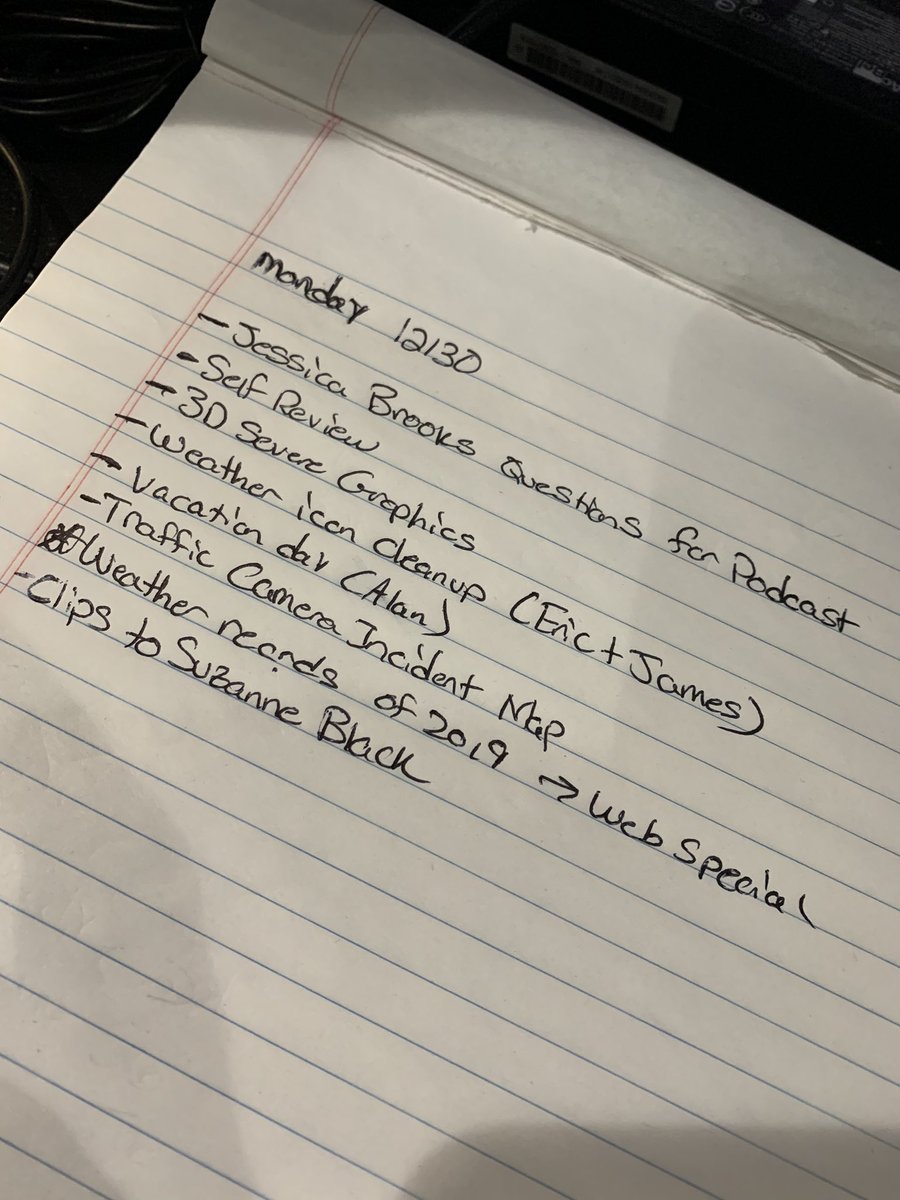 Monday 12/30
- Jessica Brooks Questions for Podcast
- Self Review
- 3D Severe Graphics
- Weather icon cleanup (Eric + James)
- Vacation day (Alan)
- Traffic Camera Incident Map
Weather records of 2019 → Web Special
- Clips to Suzanne Black